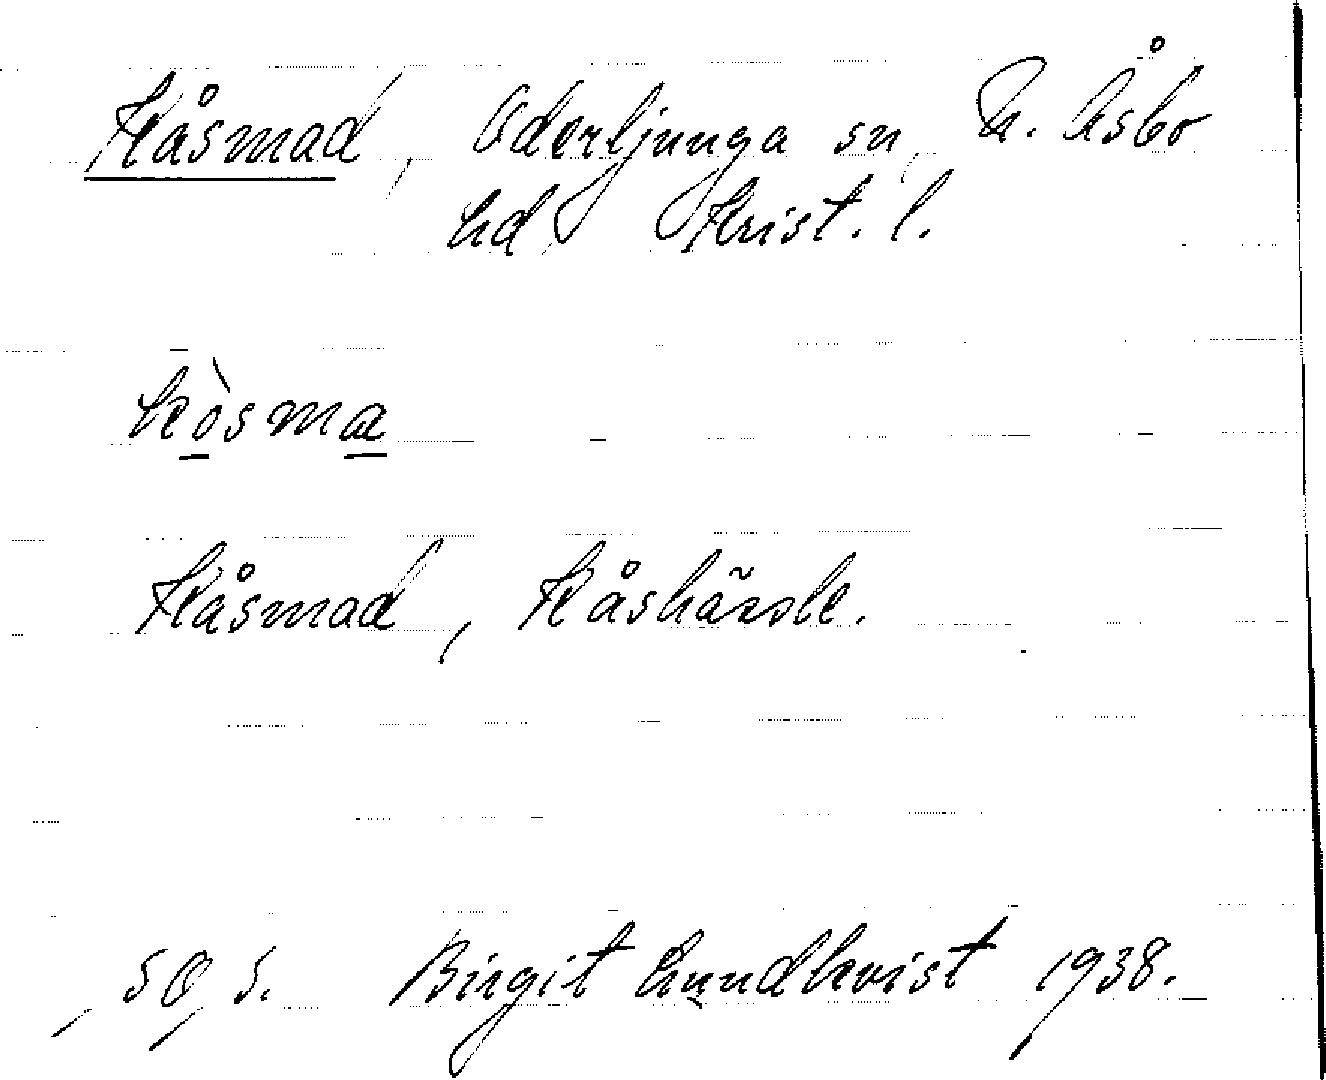 Kåsmad, Oderljunga sn, N. Åsbo
hd, Krist. l.
kòsma
Kåsmad, Kåshässle.
S. Birgit Lundkvist 1938.